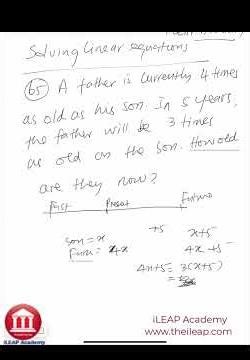 Solving linear equations
65 A father is currently 4 times
as old as his son. In 5 years,
the father will be 3 times
as old as the son. How old
are they now?
Past Present Future
+5 x+5
son = x
4x 4x+5
4x+5 = 3(x+5)
=
iLEAP Academy
iLEAP Academy
www.theileap.com